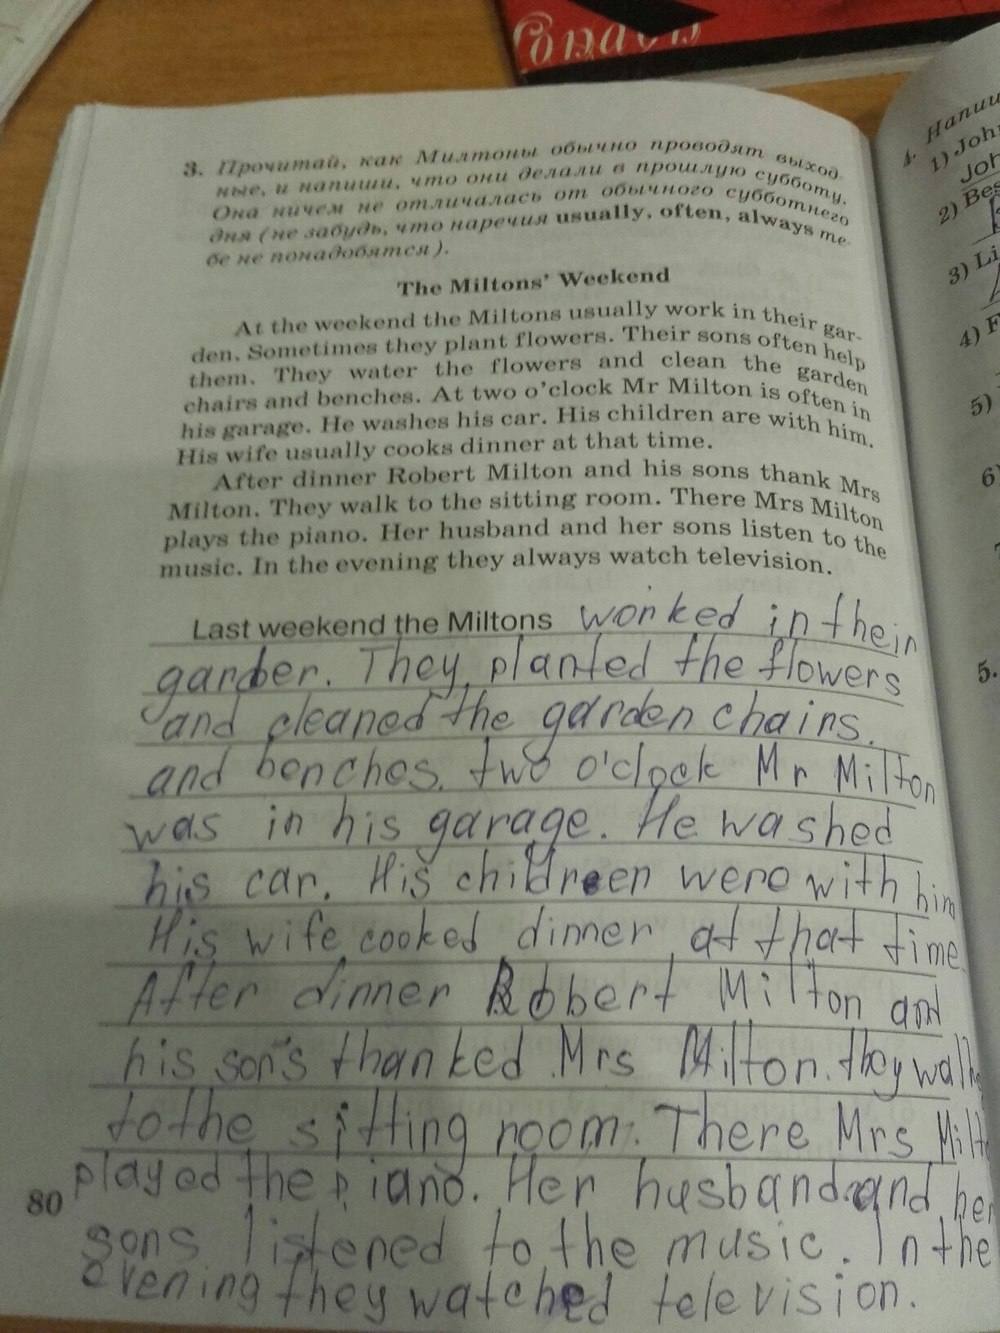 3. Прочитай, как Милтоны обычно проводят выход-
ные, и напиши, что они делали в прошлую субботу.
Она ничем не отличалась от обычного субботнего
дня (не забудь, что наречия usually, often, always те-
бе не понадобятся).
The Miltons' Weekend
At the weekend the Miltons usually work in their gar-
den. Sometimes they plant flowers. Their sons often help
them. They water the flowers and clean the garden
chairs and benches. At two o'clock Mr Milton is often in
his garage. He washes his car. His children are with him.
His wife usually cooks dinner at that time.
After dinner Robert Milton and his sons thank Mrs
Milton. They walk to the sitting room. There Mrs Milton
plays the piano. Her husband and her sons listen to the
music. In the evening they always watch television.
Last weekend the Miltons worked in their
garden. They planted the flowers
and cleaned the garden chairs.
and benches. two o'clock Mr Milton
was in his garage. He washed
his car. His children were with him
His wife cooked dinner at that time.
After dinner Robert Milton and
his sons thanked Mrs Milton. they walk
to the sitting room. There Mrs Milt
played the piano. Her husband and her
sons listened to the music. In the
evening they watched television.
80
4. Напи
1) John
Joh
2) Bes
3) Li
4) F
5)
6)
5.